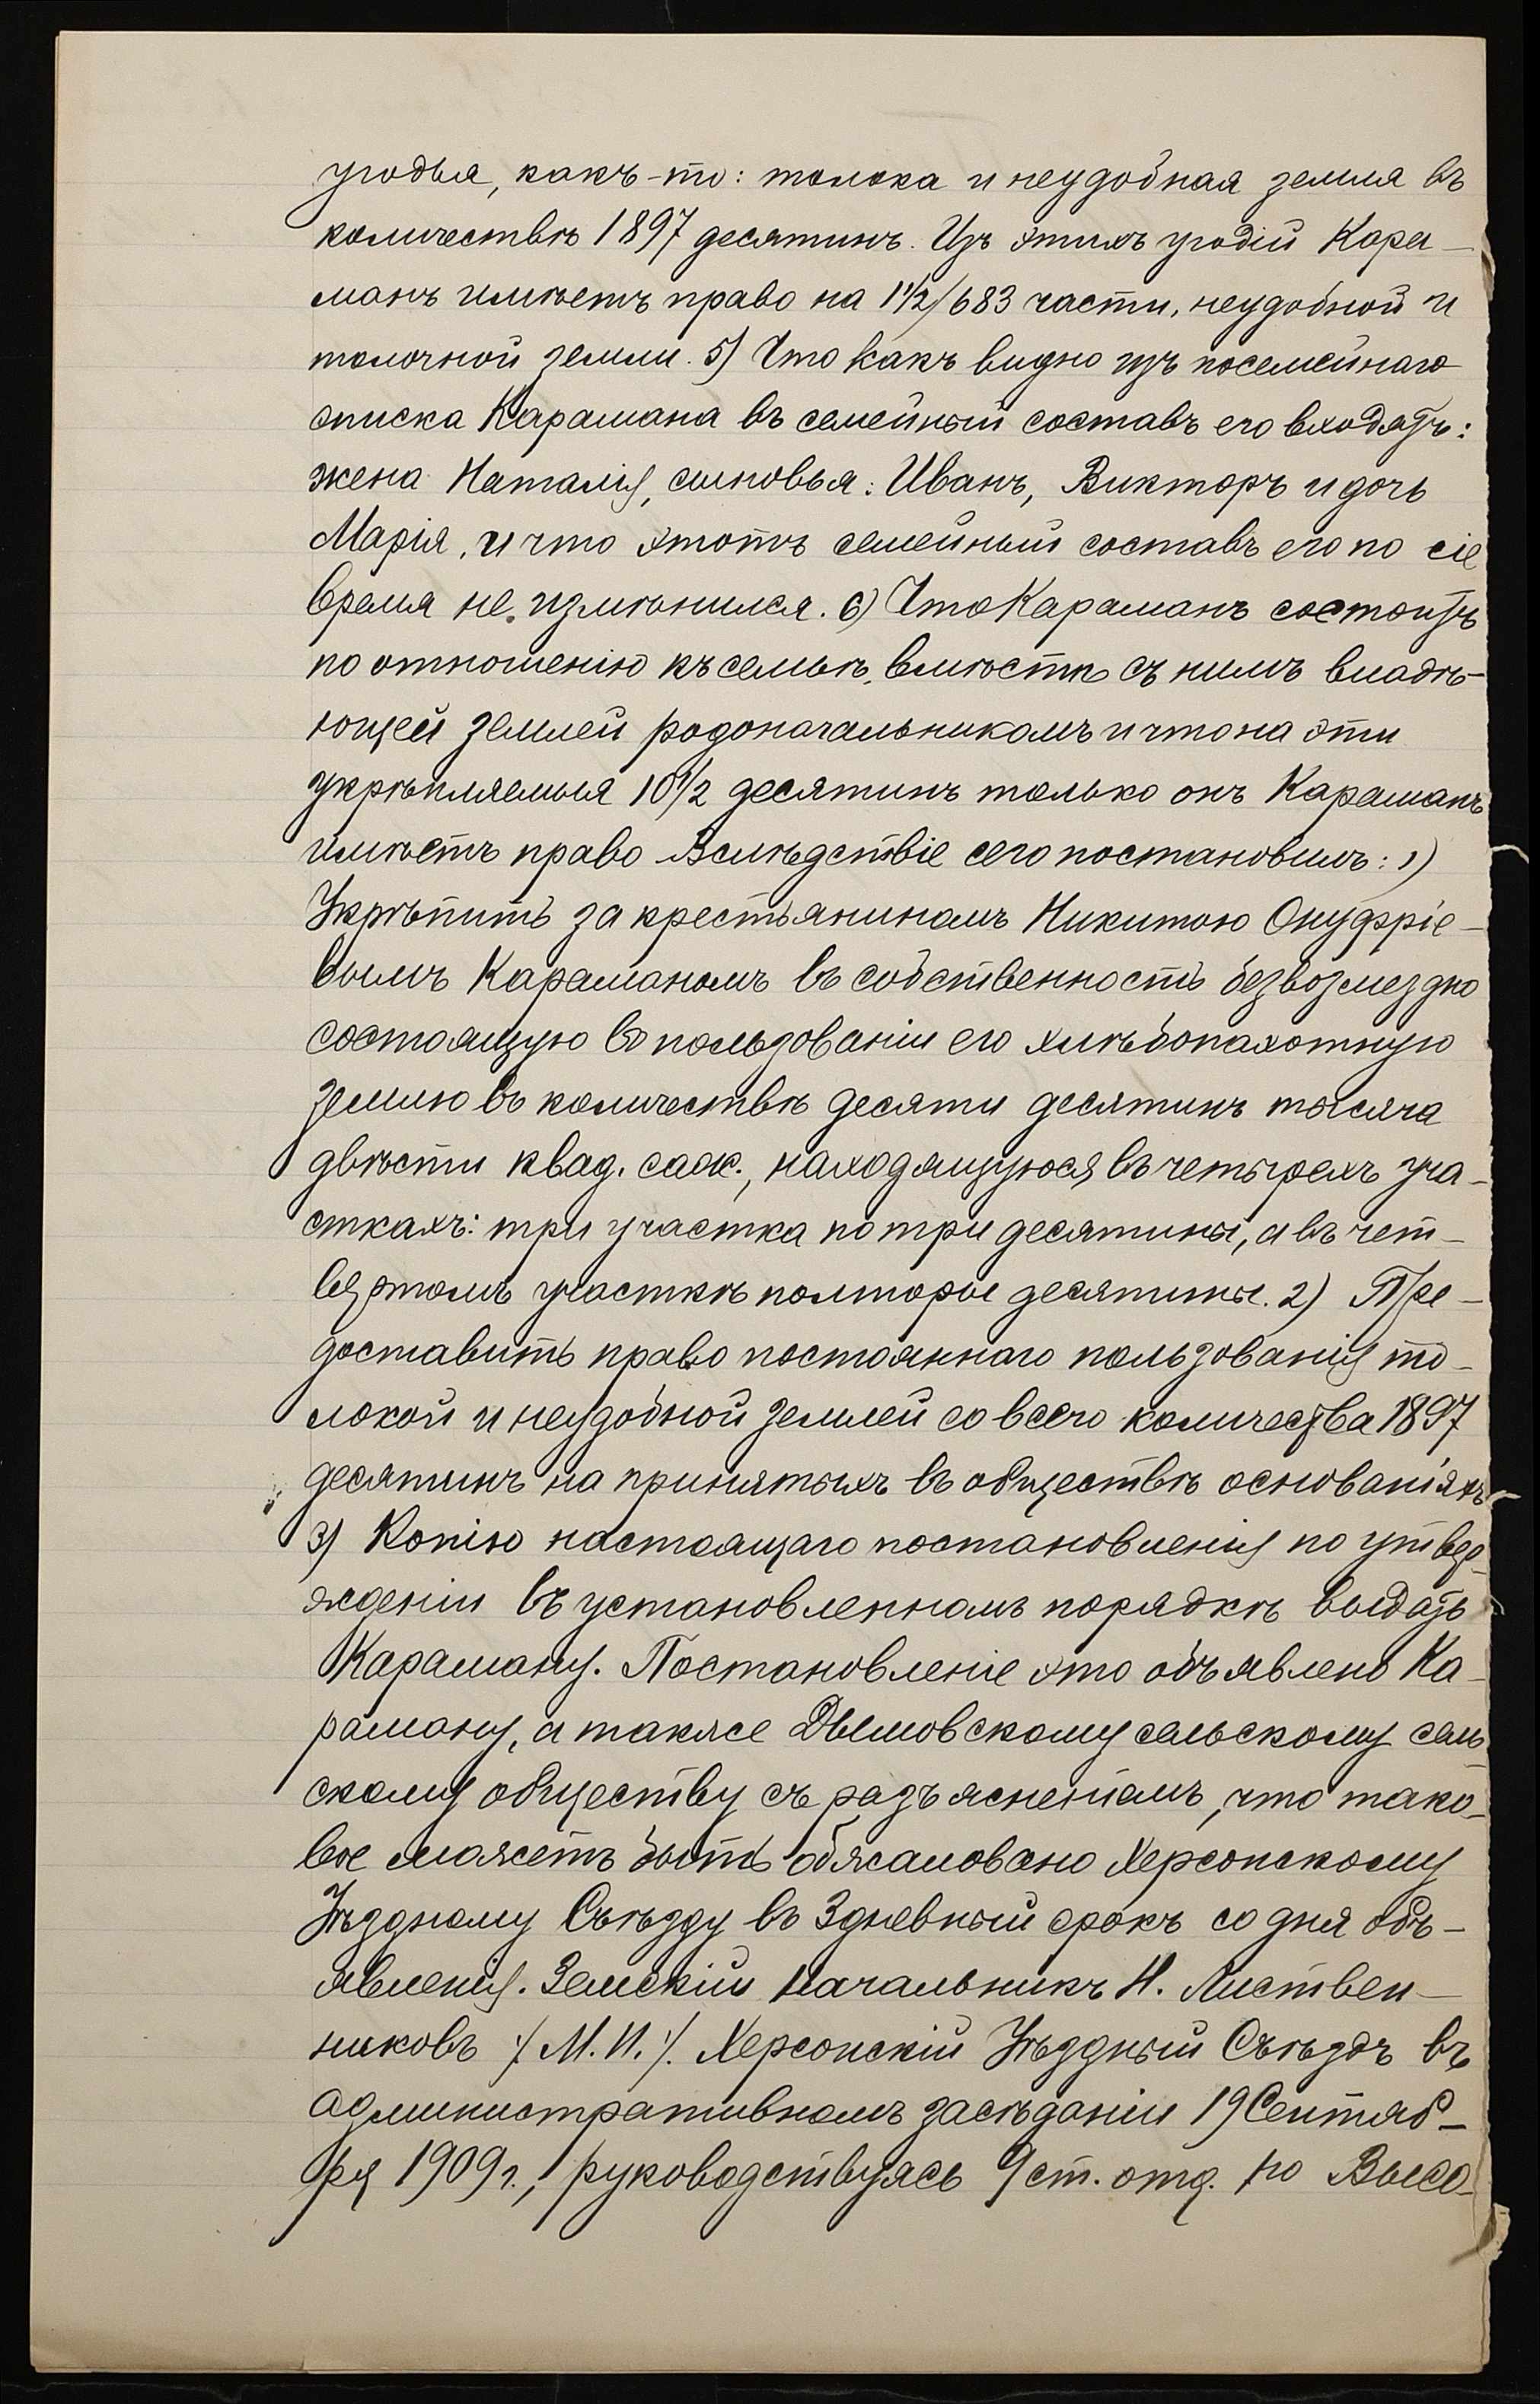 угодья, какъ-то: толока и неудобная земля въ
количествѣ 1897 десятинъ. Изъ этихъ угодій Кара-
манъ имѣетъ право на 1½/683 части, неудобной и
толочной земли. 5) Что какъ видно изъ посемейнаго
списка Карамана въ семейный составъ его входятъ:
жена Наталія, сыновья: Иванъ, Викторъ и дочь
Марія, и что этотъ семейный составъ его по сіе
время не измѣнился. 6) Что Караманъ состоитъ
по отношенію къ семьѣ, вмѣстѣ съ нимъ владѣ-
ющей землей родоначальникомъ и что на эти
укрѣпляемыя 10½ десятинъ только онъ Караманъ
имѣетъ право Вслѣдствіе сего постановилъ: 1)
Укрѣпить за крестьяниномъ Никитою Онуфріе-
вымъ Караманомъ въ собственность безвозмездно
состоящую въ пользованіи его хлѣбопахотную
землю въ количествѣ десяти десятинъ тысяча
двѣсти квад. саж., находящуюся въ четырехъ уча-
сткахъ: три участка по три десятины, а въ чет-
вертомъ участкѣ полторы десятины. 2) Пре-
доставить право постояннаго пользованія то-
локой и неудобной землей со всего количества 1897
десятинъ на принятыхъ въ обществѣ основаніяхъ
3) Копію настоящаго постановленія по утвер-
жденіи въ установленномъ порядкѣ выдать
Караману. Постановленіе это объявлено Ка-
раману, а также Дымовскому сельскому сель
скому обществу съ разъясненіемъ, что тако-
вое можетъ быть обжаловано Херсонскому
Уѣздному Съѣзду въ 3 дневный срокъ со дня объ-
явленія. Земскій Начальникъ Н. Листвен-
никовъ /М.П./. Херсонскій Уѣздный Съѣздъ въ
административномъ засѣданіи 19 Сентяб-
ря 1909 г., руководствуясь 9 ст. отд. по Высо-